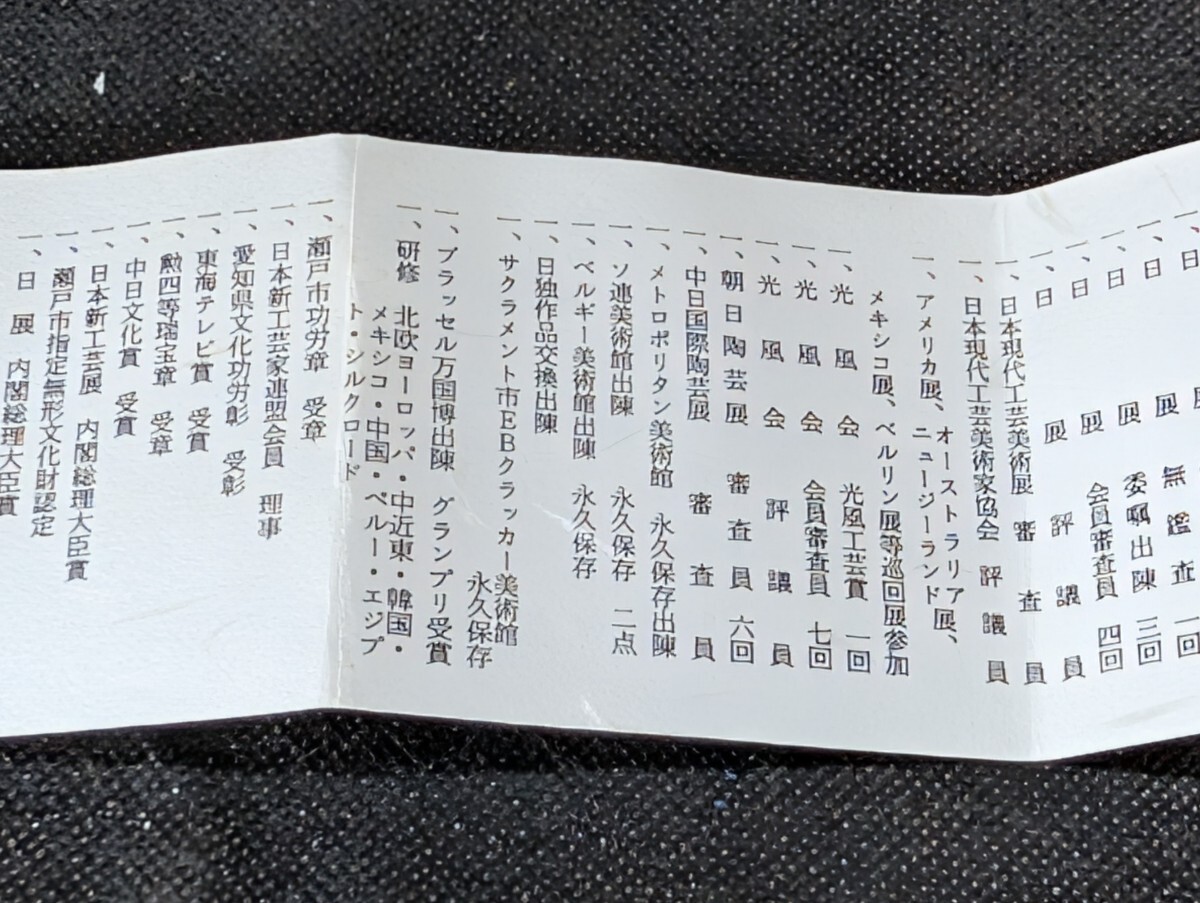 一、日 展 無鑑査 一回
一、日 展 委嘱出陳 三回
一、日 展 会員審査員 四回
一、日 展 評議員
一、日本現代工芸美術展 審査員
一、日本現代工芸美術家協会 評議員
一、アメリカ展、オーストラリア展、ニュージーランド
メキシコ展、ベルリン展等巡回展参加
一、光風会 光風工芸賞 一回
一、光風会 会員審査員 七回
一、光風会 評議員
一、朝日陶芸展 審査員 六回
一、中日国際陶芸展 審査員
一、メトロポリタン美術館 永久保存出陳
一、ソ連美術館出陳 永久保存 二点
一、ベルギー美術館出陳 永久保存
一、日独作品交換出陳
一、サクラメント市EBクラッカー美術館
永久保存
一、ブラッセル万国博出陳 グランプリ受賞
一、研修 北欧ヨーロッパ・中近東・韓国・
メキシコ・中国・ペルー・エジプ
ト・シルクロード
一、瀬戸市功労章 受章
一、日本新工芸家連盟会員 理事
一、愛知県文化功労彰 受彰
一、東海テレビ賞 受賞
一、勲四等瑞宝章 受章
一、中日文化賞 受賞
一、日本新工芸展 内閣総理大臣賞
一、瀬戸市指定無形文化財認定
一、日 展 内閣総理大臣賞